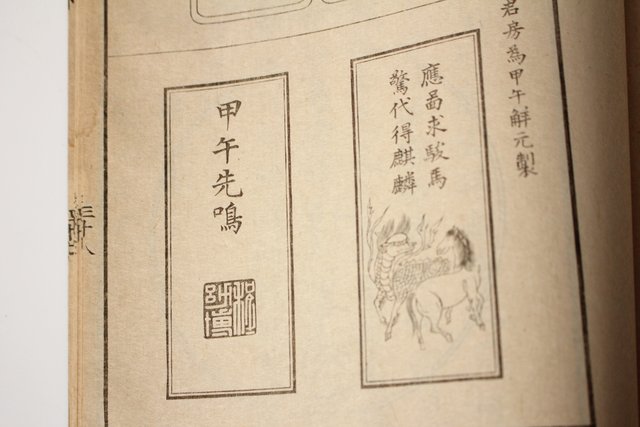 君房為甲午觧元製
應啚求駿馬
驚代得麒麟
甲午先鳴